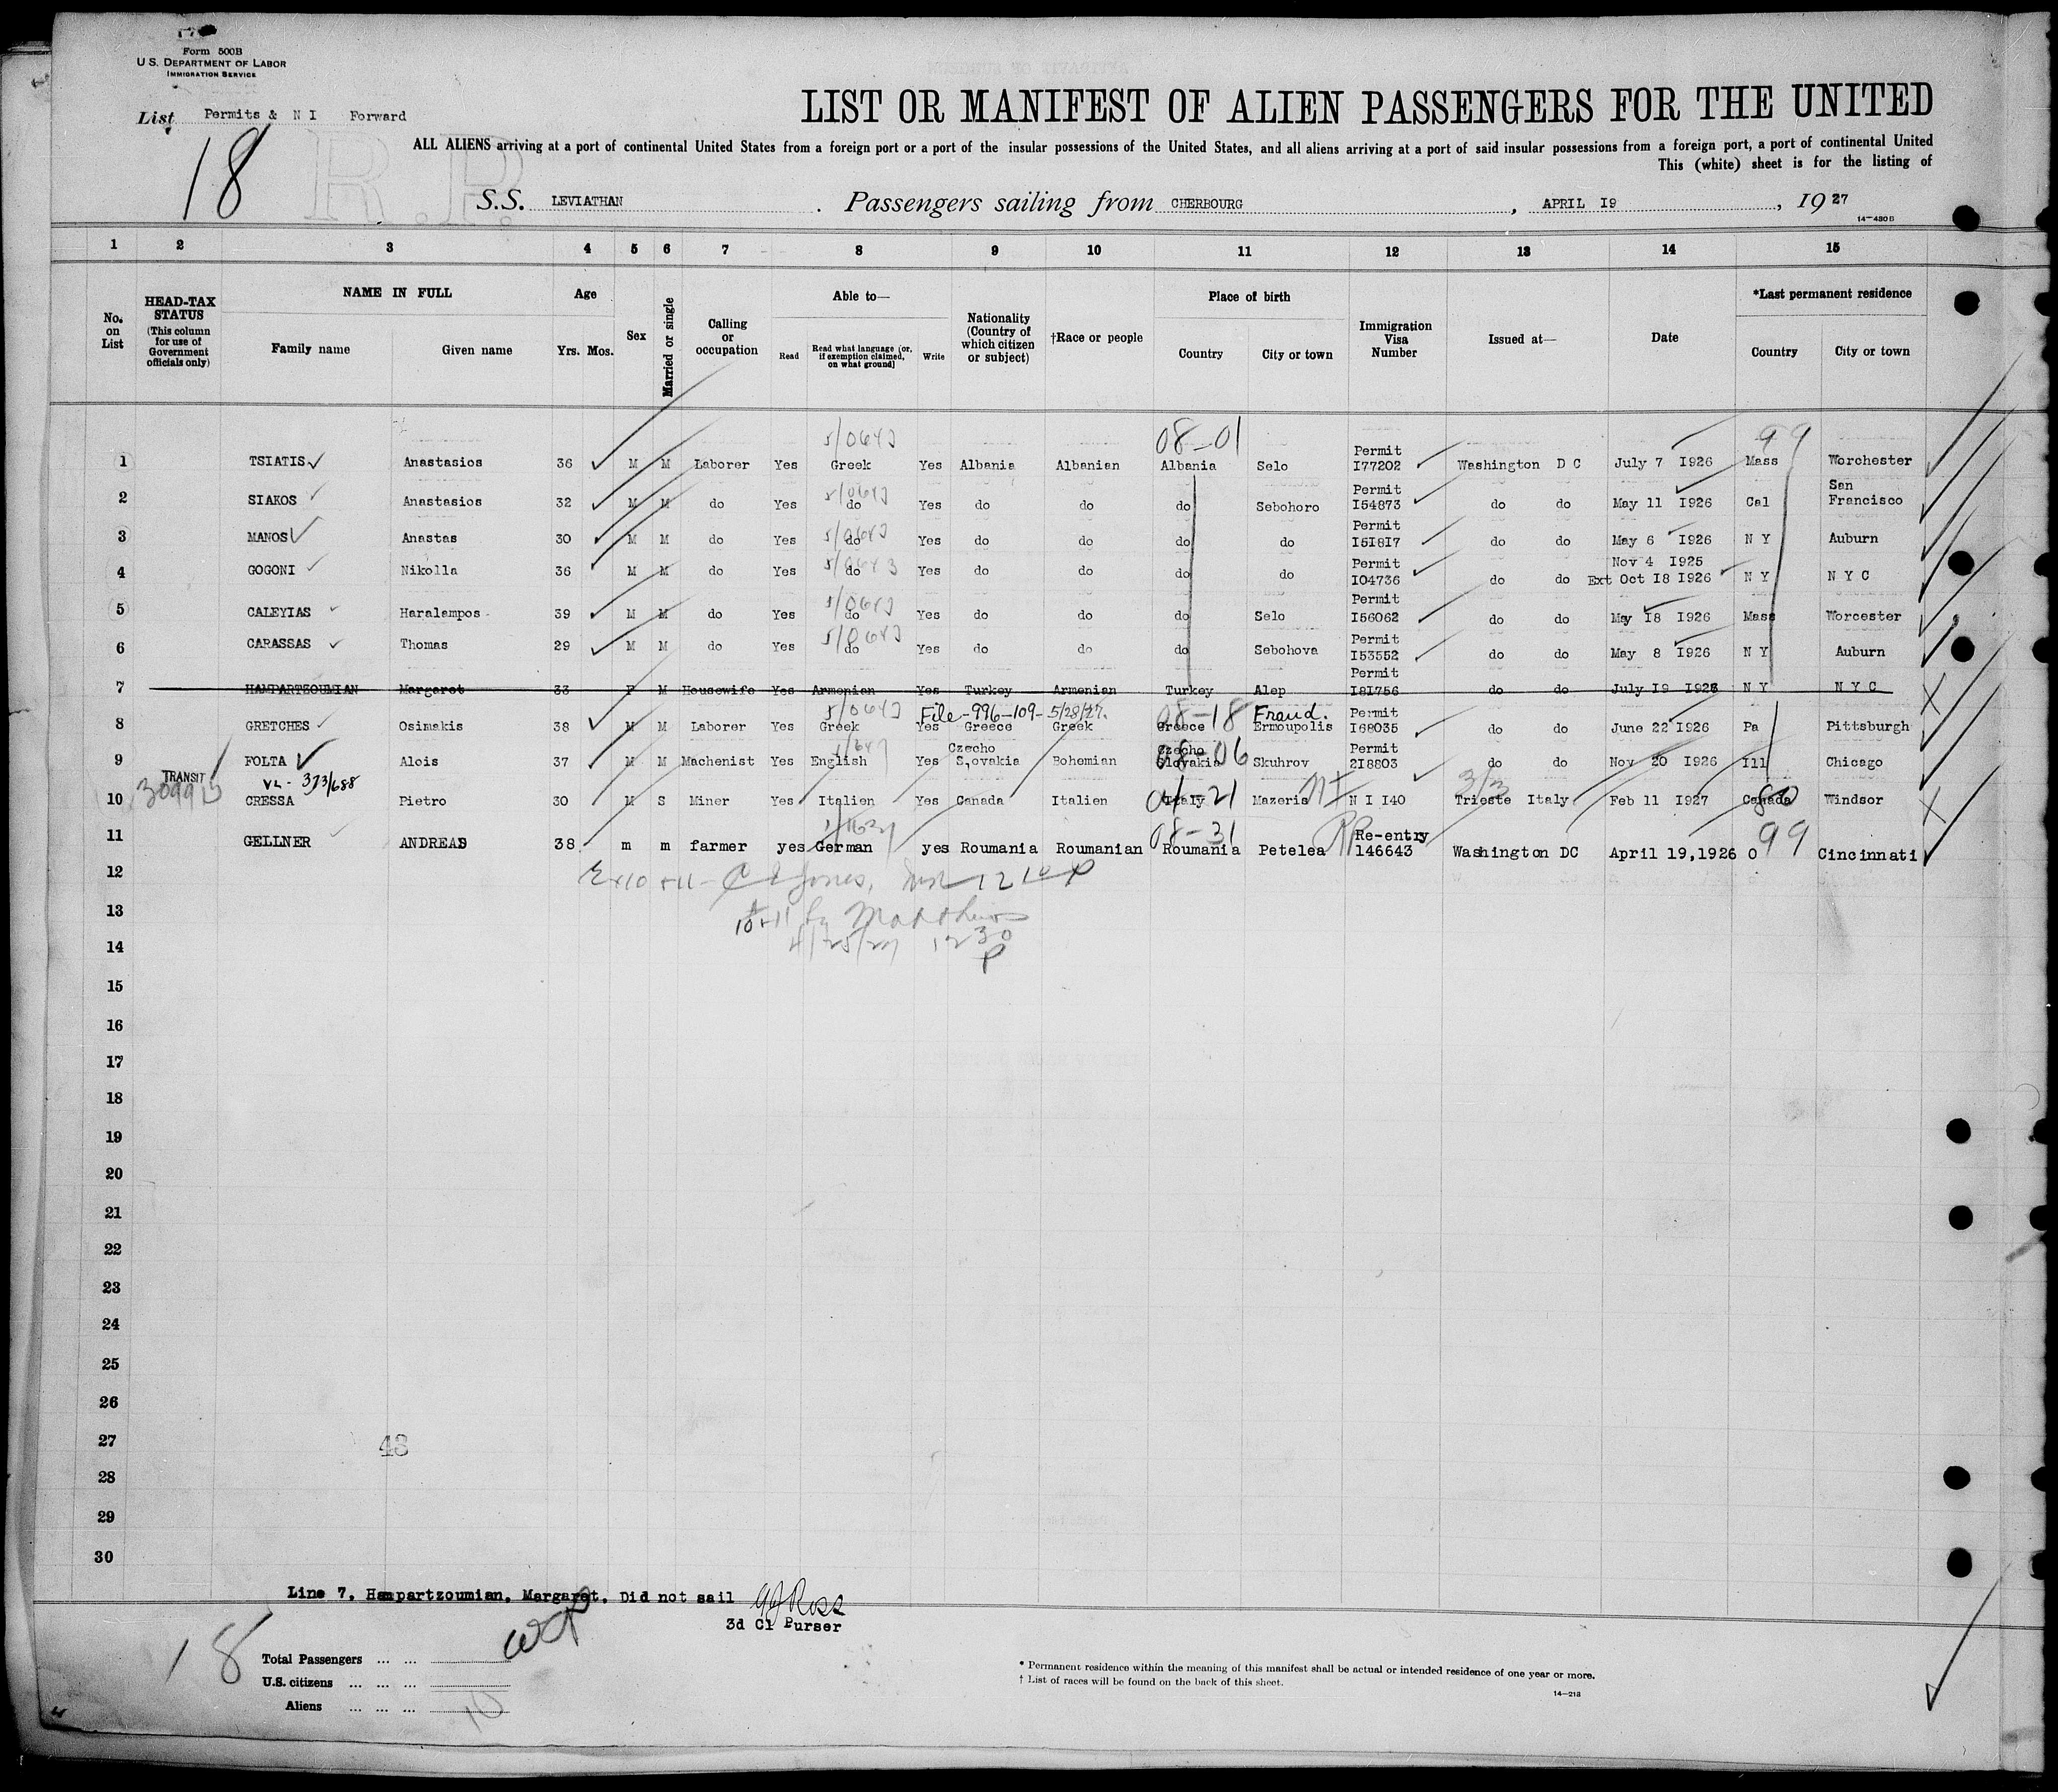 Form 500B
U.S. DEPARTMENT OF LABOR
IMMIGRATION SERVICE
List Permits & N I Forward
18
R.P.
LIST OR MANIFEST OF ALIEN PASSENGERS FOR THE UNITED
ALL ALIENS arriving at a port of continental United States from a foreign port or a port of the insular possessions of the United States, and all aliens arriving at a port of said insular possessions from a foreign port, a port of continental United
This (white) sheet is for the listing of
S.S. LEVIATHAN. Passengers sailing from CHERBOURG, APRIL I9, 1927
14-430B
1 2 3 4 5 6 7 8 9 10 11 12 13 14 15
No. on List
HEAD-TAX STATUS (This column for use of Government officials only)
NAME IN FULL
Family name Given name
Age
Yrs. Mos.
Sex
Married or single
Calling or occupation
Able to—
Read
Read what language (or, if exemption claimed, on what ground)
Write
Nationality (Country of which citizen or subject)
†Race or people
Place of birth
Country City or town
Immigration Visa Number
Issued at—
Date
*Last permanent residence
Country City or town
5/0643 08-01 99
1 TSIATIS Anastasios 36 M M Laborer Yes Greek Yes Albania Albanian Albania Selo Permit I77202 Washington D C July 7 I926 Mass Worchester
5/0643
2 SIAKOS Anastasios 32 M M do Yes do Yes do do do Sebohoro Permit I54873 do do May 11 I926 Cal San Francisco
5/0643
3 MANOS Anastas 30 M M do Yes do Yes do do do do Permit I51817 do do May 6 I926 N Y Auburn
5/0643
4 GOGONI Nikolla 36 M M do Yes do Yes do do do do Permit I04736 do do Nov 4 I925 Ext Oct I8 I926 N Y N Y C
5/0643
5 CALEYIAS Haralampos 39 M M do Yes do Yes do do do Selo Permit I56062 do do May I8 I926 Mass Worcester
5/0643
6 CARASSAS Thomas 29 M M do Yes do Yes do do do Sebohova Permit I53552 do do May 8 I926 N Y Auburn
7 HAMPARTZOUMIAN Margaret 33 F M Housewife Yes Armenian Yes Turkey Armenian Turkey Alep Permit I8I756 do do July I9 I926 N Y N Y C
5/0643 File-996-109-5/28/27. 08-18 Fraud.
8 GRETCHES Osimakis 38 M M Laborer Yes Greek Yes Greece Greek Greece Ermoupolis Permit I68035 do do June 22 I926 Pa Pittsburgh
08-06
9 FOLTA Alois 37 M M Machenist Yes English Yes Czecho Slovakia Bohemian Czecho Slovakia Skuhrov Permit 2I8803 do do Nov 20 I926 Ill Chicago
TRANSIT VL- 373/688
10 CRESSA Pietro 30 M S Miner Yes Italien Yes Canada Italien Italy Mazeris NI N I I40 3/3 Trieste Italy Feb 11 I927 Canada Windsor
08-31 RP 99
11 GELLNER ANDREAS 38 m m farmer yes German yes Roumania Roumanian Roumania Petelea Re-entry 146643 Washington DC April 19,1926 O Cincinnati
12
10+11 by Matthews
13
4/25/27 12 30 P
14
15
16
17
18
19
20
21
22
23
24
25
26
27
43
28
29
30
Line 7, Hampartzoumian, Margaret, Did not sail
Ross
3d Cl Purser
18
Total Passengers ... ...
U.S. citizens ... ... ...
Aliens ... ... ... 10
* Permanent residence within the meaning of this manifest shall be actual or intended residence of one year or more.
† List of races will be found on the back of this sheet.
14-213